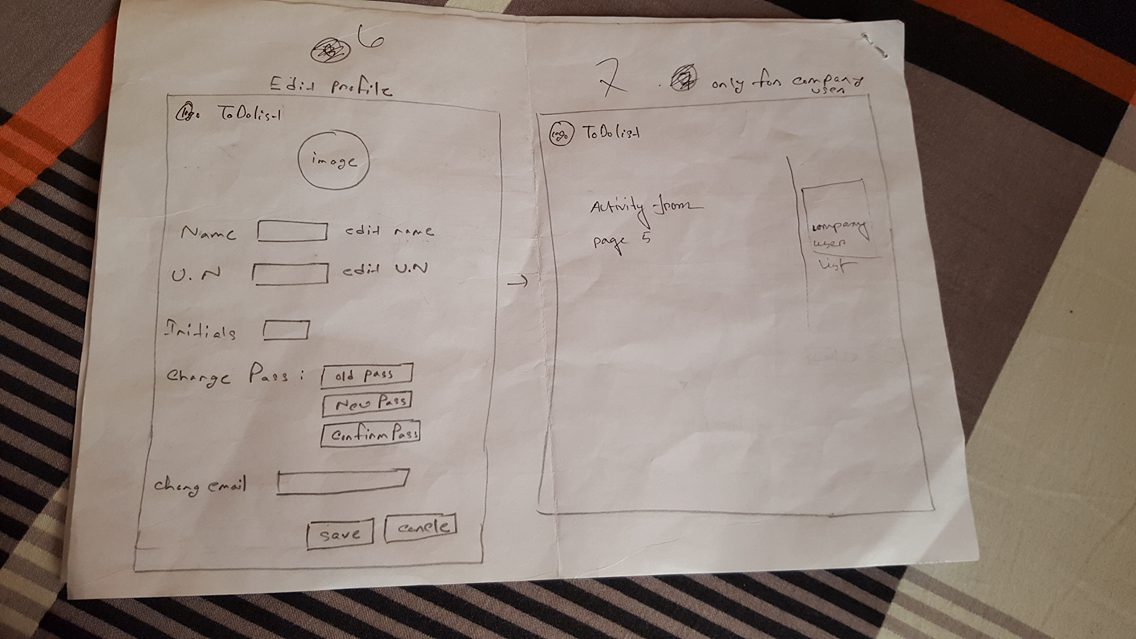 6
Edit Profile
logo ToDolist
image
Name edit name
U.N edit U.N
Initials
Change Pass: old pass
New Pass
Confirm Pass
chang email
save cancle
7 only for company
user
logo ToDolist
Activity from
page 5
company
user
list